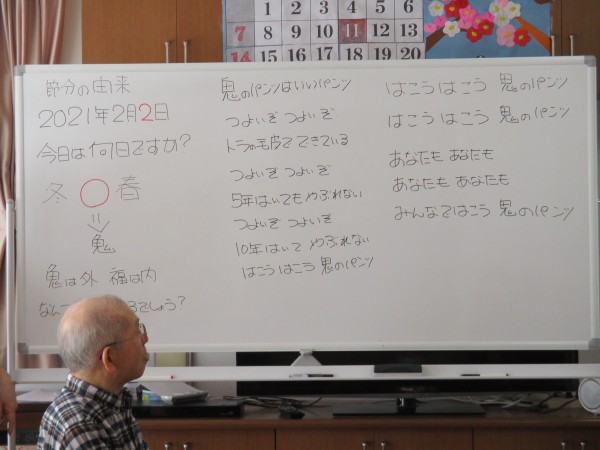 1 2 3 4 5 6
7 8 9 10 11 12 13
14 15 16 17 18 19 20
節分の由来
2021年2月2日
今日は何日ですか?
冬 〇 春
鬼
鬼は外 福は内
でしょう?
鬼のパンツはいいパンツ
つよいぞ つよいぞ
トラの毛皮で できている
つよいぞ つよいぞ
5年はいても やぶれない
つよいぞ つよいぞ
10年はいて やぶれない
はこう はこう 鬼のパンツ
はこう はこう 鬼のパンツ
はこう はこう 鬼のパンツ
あなたも あなたも
あなたも あなたも
みんなではこう 鬼のパンツ